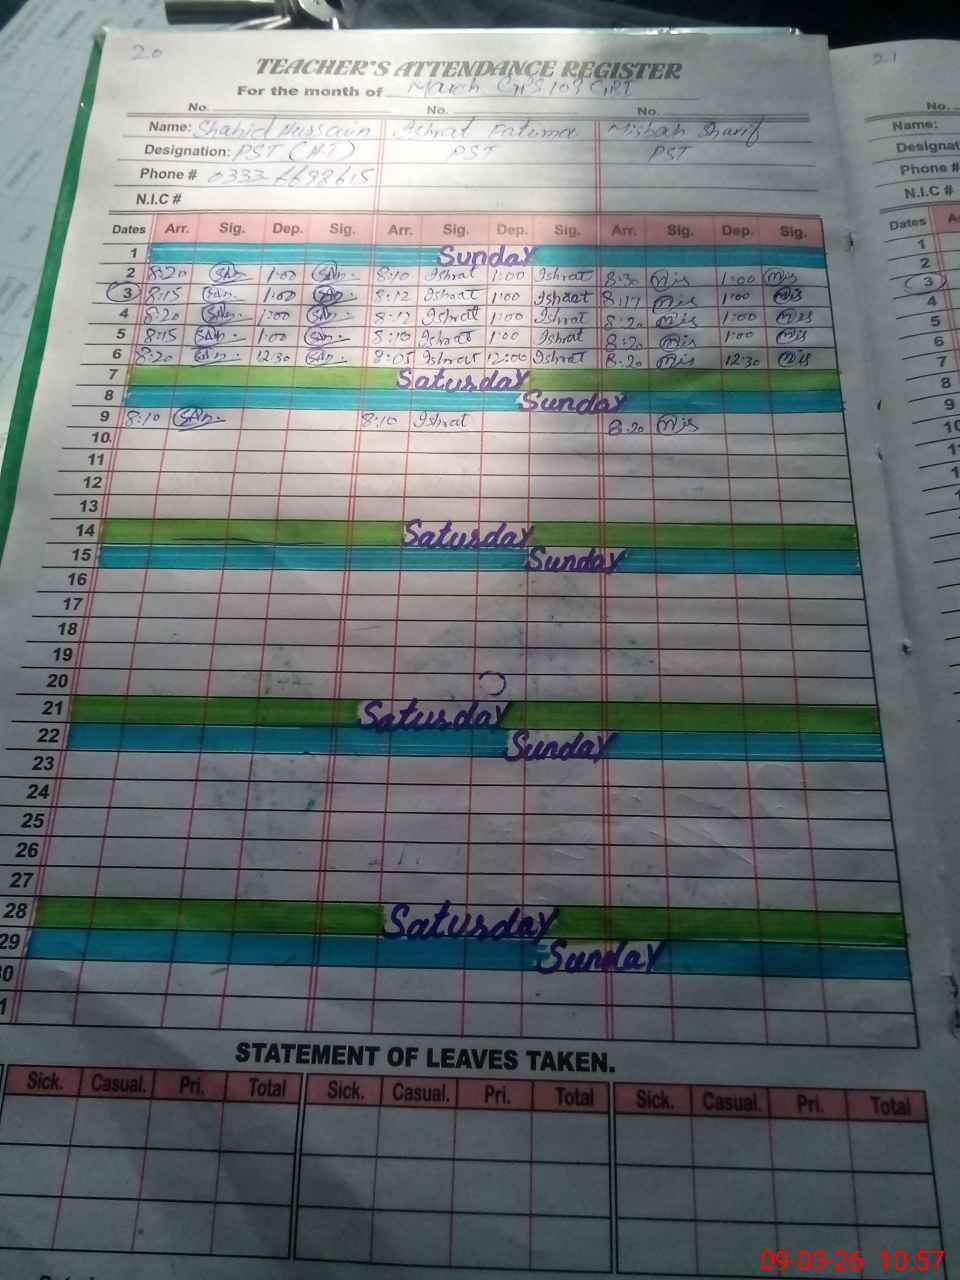 20
21
TEACHER'S ATTENDANCE REGISTER
For the month of March
No. No. No.
Name: Shahid Hussain Ishrat Fatima Misbah Sharif
Designation: PST (HT) PST PST
Phone #
N.I.C #
Dates Arr. Sig. Dep. Sig. Arr. Sig. Dep. Sig. Arr. Sig. Dep. Sig.
1 Sunday
2 8:20 1:00 8:10 Ishrat 1:00 Ishrat 8:30 Mis 1:00 Mis
3 8:15 1:00 8:12 Ishrat 1:00 Ishrat 8:17 Mis 1:00 Mis
4 8:20 1:00 8:12 Ishrat 1:00 Ishrat 8:20 Mis 1:00 Mis
5 8:15 1:00 8:10 Ishrat 1:00 Ishrat 8:20 Mis 1:00 Mis
6 8:20 12:30 8:05 Ishrat 12:00 Ishrat 8:20 Mis 12:30 Mis
7 Saturday
8 Sunday
9 8:10 8:10 Ishrat 8:20 Mis
10.
11
12
13
14 Saturday
15 Sunday
16
17
18
19
20
21 Saturday
22 Sunday
23
24
25
26
27
28 Saturday
29 Sunday
30
1
STATEMENT OF LEAVES TAKEN.
Sick. Casual. Pri. Total Sick. Casual. Pri. Total Sick. Casual. Pri. Total
No.
Name:
Designat
Phone #
N.I.C #
Dates
1
2
3
4
5
6
7
8
9
10
09-03-26 10:57